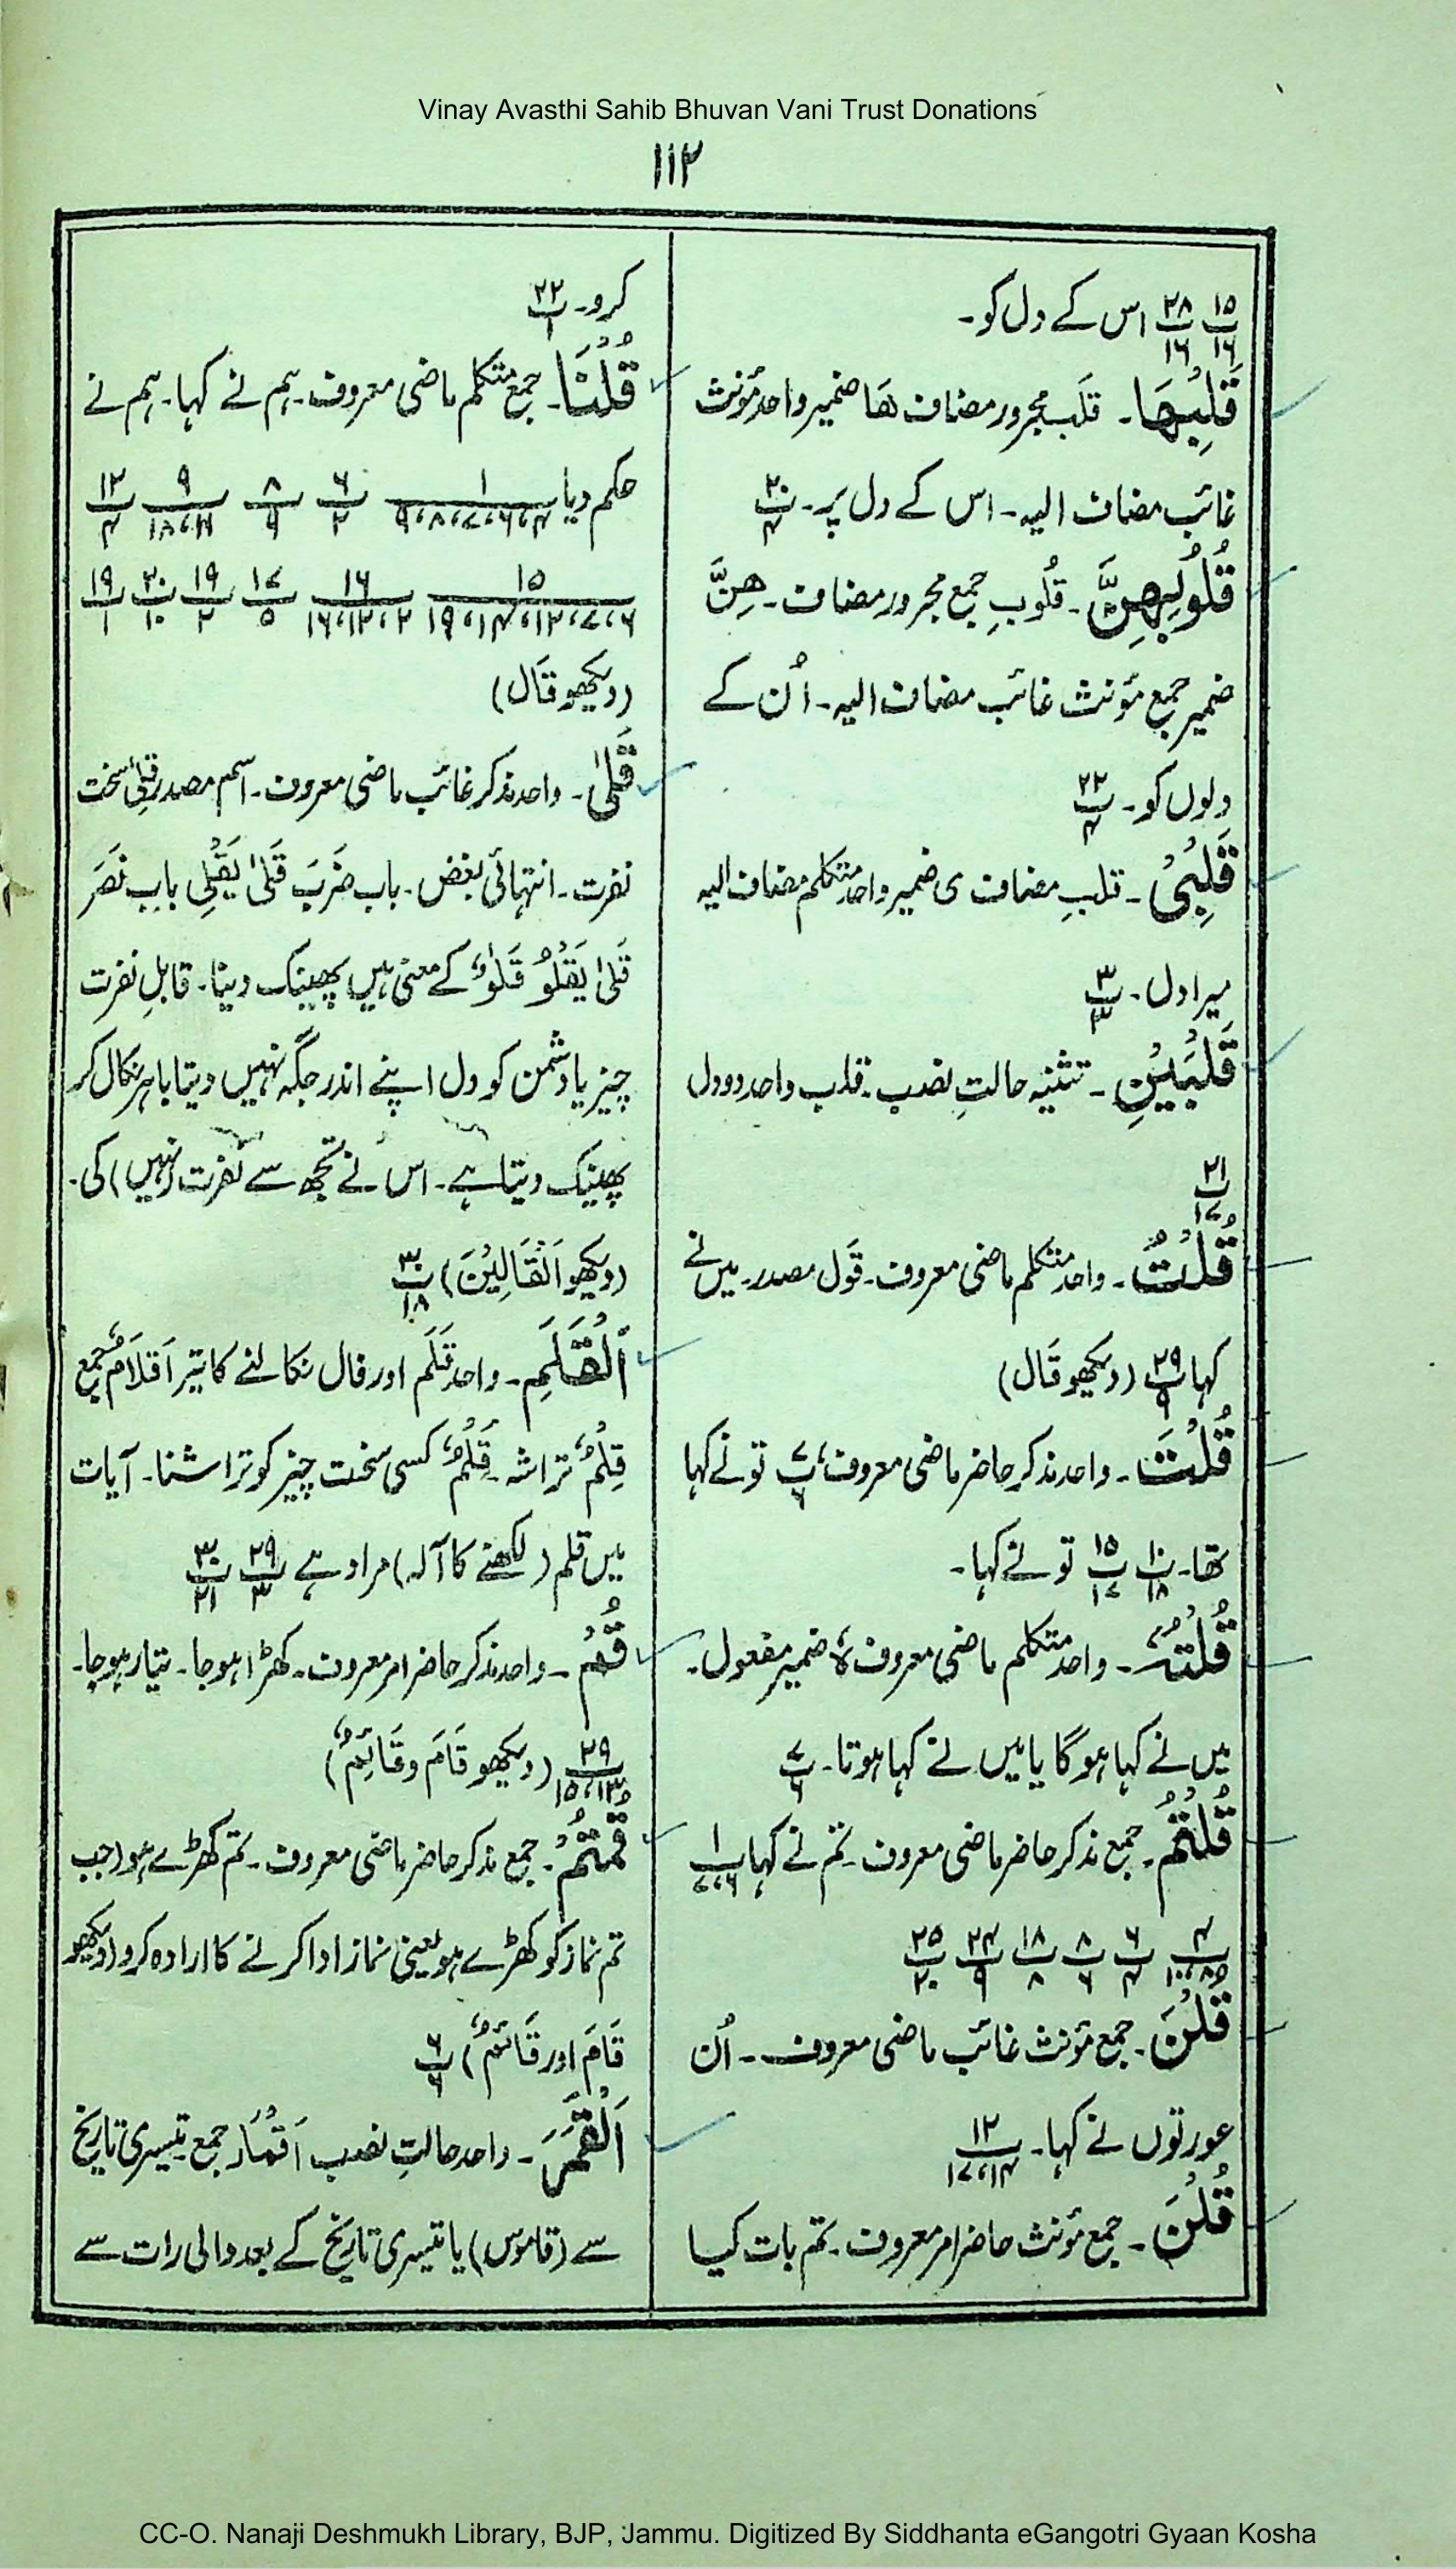 Vinay Avasthi Sahib Bhuvan Vani Trust Donations
۱۱۲
۱۵/۱۶ ۲۸/۱۶ اس کے دل کو۔
قَلْبِهَا۔ قَلب مجرور مضاف هَا ضمیر واحد مؤنث
غائب مضاف الیہ۔ اس کے دل پر۔ ۲۰/۴
قُلُوبِهِنَّ۔ قُلُوبِ جمع مجرور مضاف۔ هِنَّ
ضمیر جمع مؤنث غائب مضاف الیہ۔ اُن کے
دلوں کو۔ ۲۲/۴
قَلْبِیْ۔ قلبِ مضاف ی ضمیر واحد متکلم مضاف الیہ
میرا دل۔ ۳/۳
قَلْبَیْنِ۔ تثنیہ حالتِ نصب۔ قلب واحد دو دل
۲۱/۱۷
قُلْتُ۔ واحد متکلم ماضی معروف۔ قَول مصدر۔ میں نے
کہا ۲۹/۹ (دیکھو قَال)
قُلْتَ۔ واحد مذکر حاضر ماضی معروف، ۷/۶ تو نے کہا
تھا۔ ۱۰/۱۸ ۱۵/۱۷ تو نے کہا۔
قُلْتُهٗ۔ واحد متکلم ماضی معروف ہٗ ضمیر مفعول۔
میں نے کہا ہوگا یا میں نے کہا ہوتا۔ ۷/۶
قُلْتُمْ۔ جمع مذکر حاضر ماضی معروف۔ تم نے کہا ۱/۶،۷
۴/۸،۱۰ ۶/۴ ۸/۶ ۱۸/۸ ۲۴/۹ ۲۵/۲۰
قُلْنَ۔ جمع مؤنث غائب ماضی معروف۔ اُن
عورتوں نے کہا۔ ۱۲/۱۴،۱۷
قُلْنَ۔ جمع مؤنث حاضر امر معروف۔ تم بات کیا
کرو۔ ۲۲/۱
قُلْنَا۔ جمع متکلم ماضی معروف۔ ہم نے کہا۔ ہم نے
حکم دیا ۱/۴،۶،۷،۸،۹ ۶/۲ ۸/۹ ۹/۱۱،۱۸ ۱۲/۴
۱۵/۶،۷،۱۲،۱۴،۱۹ ۱۶/۲،۱۲،۱۶ ۱۷/۵ ۱۹/۲ ۲۰/۱۰ ۱۹/۱
(دیکھو قَال)
قَلٰی۔ واحد مذکر غائب ماضی معروف۔ اسم مصدر قِلٰی سخت
نفرت۔ انتہائی بغض۔ باب ضَرَبَ قَلٰی یَقْلِی باب نَصَرَ
قَلٰی یَقْلُوْ قَلْوٌ کے معنی ہیں پھینک دینا۔ قابلِ نفرت
چیز یا دشمن کو دل اپنے اندر جگہ نہیں دیتا باہر نکال کر
پھینک دیتا ہے۔ اس نے تجھ سے نفرت (نہیں) کی۔
(دیکھو اَلْقَالِیْنَ) ۳۰/۱۸
اَلْقَلَمِ۔ واحد قَلَم اور فال نکالنے کا تیر اَقْلَامٌ جمع
قِلْمٌ تراشہ۔ قَلْمٌ کسی سخت چیز کو تراشنا۔ آیات
میں قلم (لکھنے کا آلہ) مراد ہے ۲۹/۳ ۳۰/۲۱
قُمْ۔ واحد مذکر حاضر امر معروف۔ کھڑا ہوجا۔ تیار ہوجا۔
۲۹/۱۳،۱۵ (دیکھو قَامَ و قَائِمٌ)
قُمْتُمْ۔ جمع مذکر حاضر ماضی معروف۔ تم کھڑے ہو (جب
تم نماز کو کھڑے ہو یعنی نماز ادا کرنے کا ارادہ کرو (دیکھو
قَامَ اور قَائِمٌ) ۶/۶
اَلْقَمَرَ۔ واحد حالتِ نصب اَقْمَار جمع تیسری تاریخ
سے (قاموس) یا تیسری تاریخ کے بعد والی رات سے
CC-O. Nanaji Deshmukh Library, BJP, Jammu. Digitized By Siddhanta eGangotri Gyaan Kosha